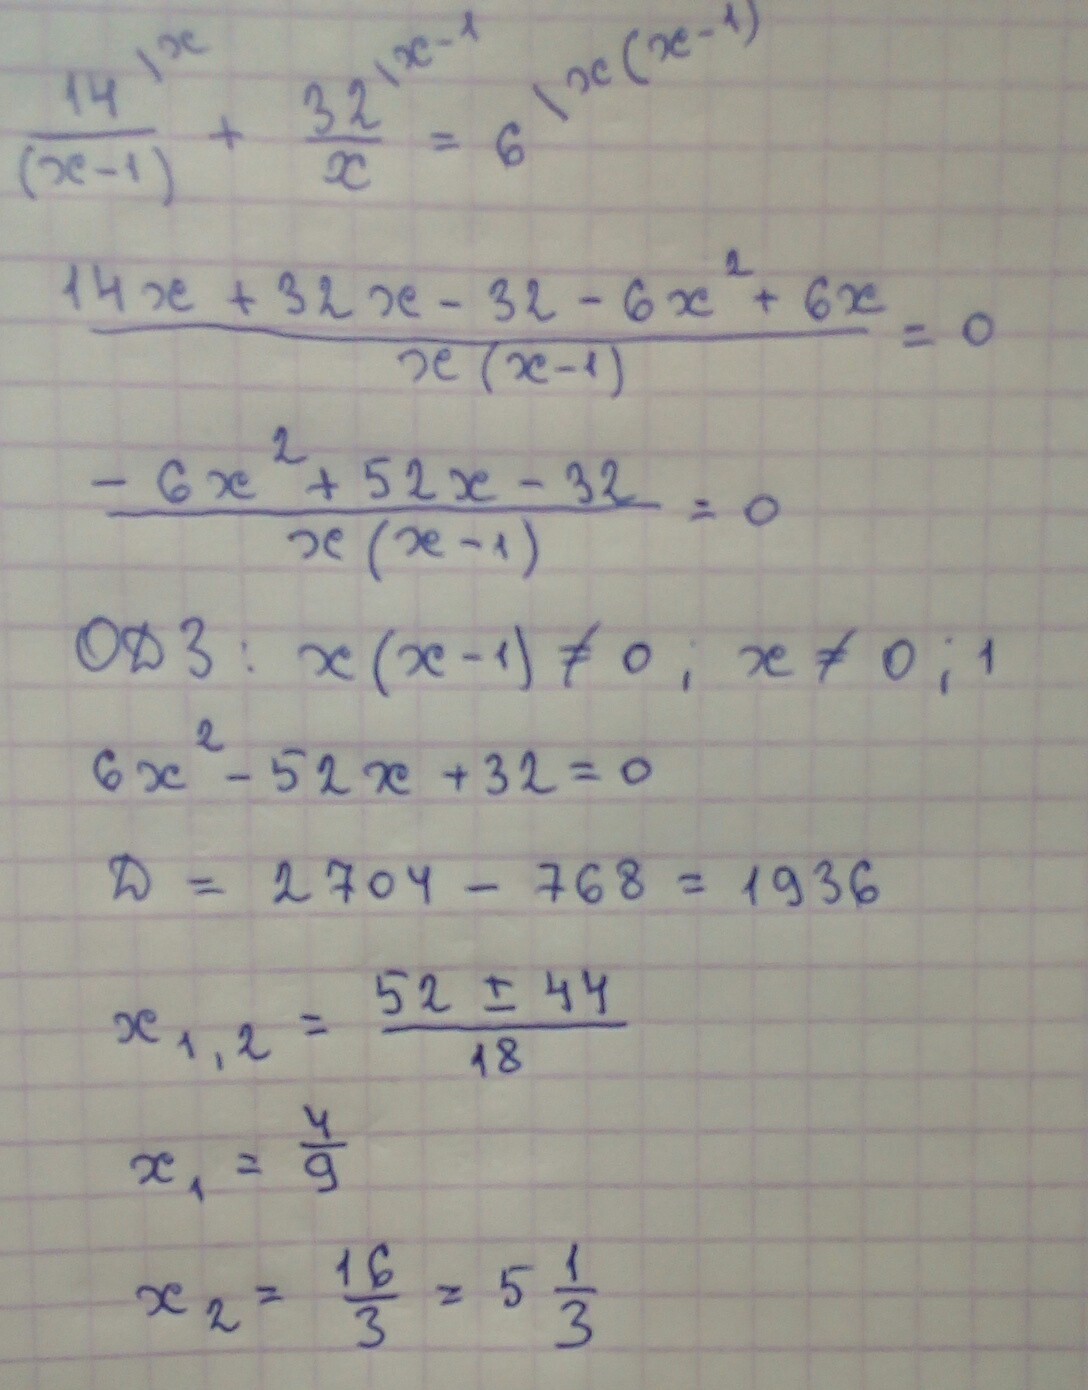 14\x/(x-1) + 32\x-1/x = 6\x(x-1)
14x + 32x - 32 - 6x² + 6x/x(x-1) = 0
- 6x² + 52x - 32/x(x-1) = 0
ОДЗ: x(x-1) ≠ 0; x ≠ 0; 1
6x² - 52x + 32 = 0
D = 2704 - 768 = 1936
x₁,₂ = 52 ± 44/18
x₁ = 4/9
x₂ = 16/3 = 5 1/3